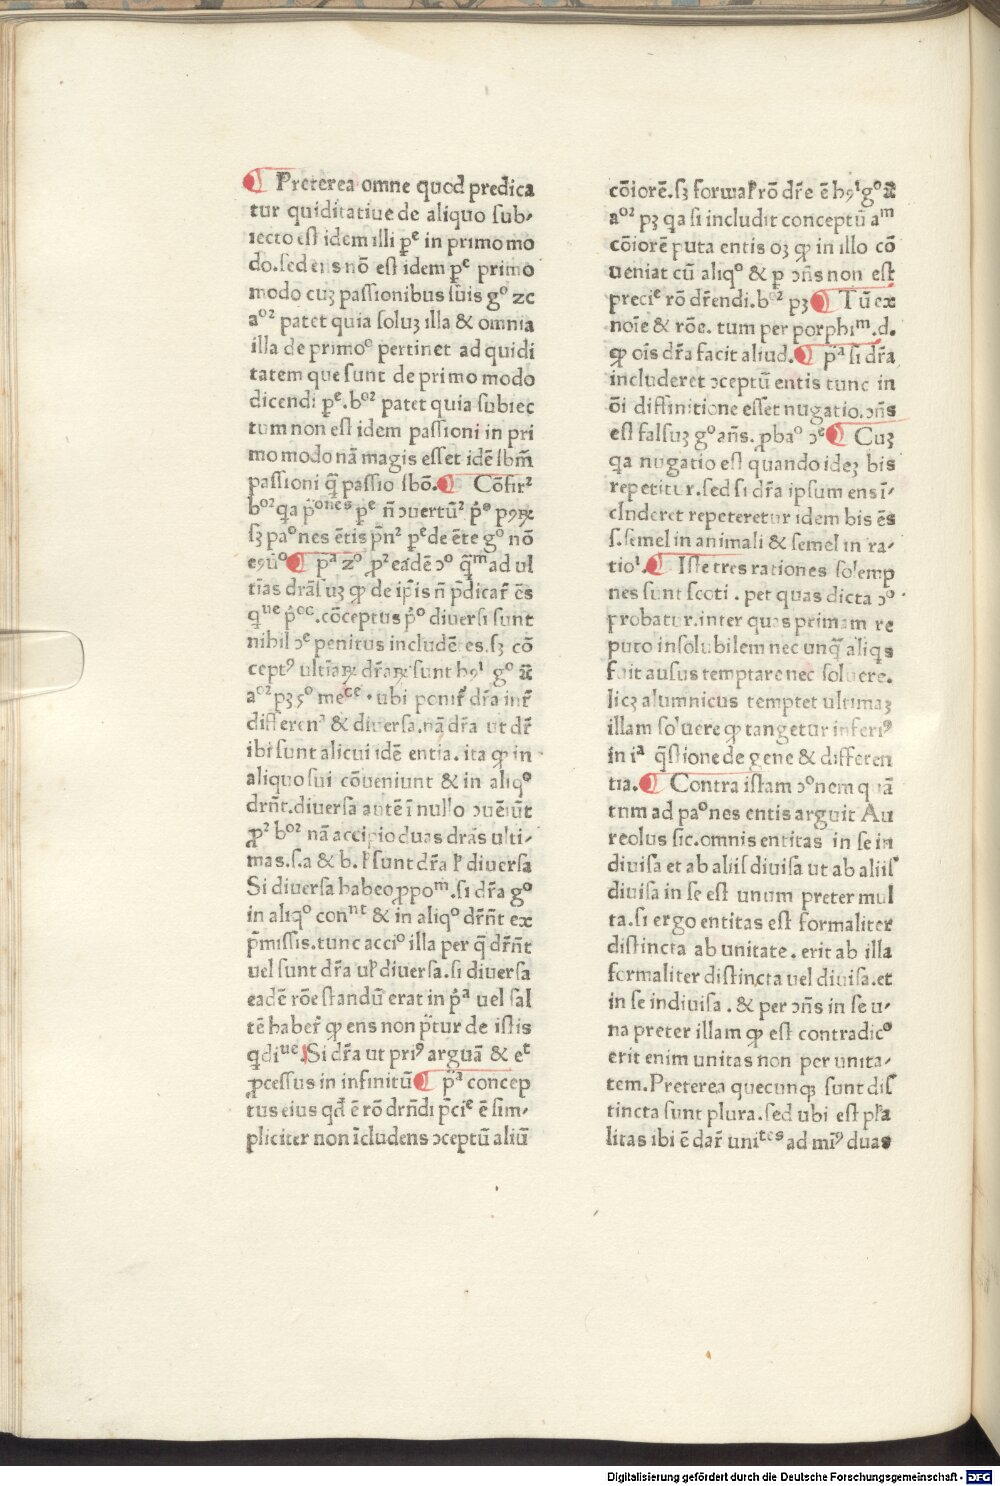 ¶ Preterea omne quod predica
tur quiditatiue de aliquo sub-
iecto est idem illi ꝑᵉ in primo mo
do.sed ens nõ est idem ꝑᵉ primo
modo cuȝ passionibus suis gº ꝛc
aº² patet quia soluȝ illa & omnia
illa de primoº pertinet ad quidi
tatem que sunt de primo modo
dicendi ꝑᵉ.bº² patet quia subiec
tum non est idem passioni in pri
mo modo nã magis esset idẽ ibm̃
passioni q̃ passio ibõ. ¶ Cõfir²
bº²
sȝ paºnes ẽtis
¶ pᵃ zº ꝓ² eadẽ ɔº q̃ᵐ ad ul
tĩas drãs uȝ ꝙ de ip̃is ñ p̃dicar̃ ẽs
cõceptus p̃º diuersi sunt
nihil ɔᵉ penitus includẽtes.sȝ cõ
ceptꝰ ultĩaꝝ dr̃aꝝ sunt hꝰⁱ gº
aº² pȝ 5º meᶜᵉ. ubi ponit̃ dr̃a int̃
differenᵃ & diuersa.nã dr̃a ut dr̃
ibi sunt alicui idẽ entia. ita ꝙ in
aliquo sui cõueniunt & in aliqº
drñt.diuersa autẽ ĩ nullo ɔuẽiũt
ꝓ² bº² nã accipio duas drãs ulti-
mas.s.a & b. ł sunt dr̃a ł diuersa
Si diuersa habeo ꝓpoᵐ.si dr̃a gº
in aliqº conⁿᵗ & in aliqº dr̃ñt ex
p̃missis.tunc acciº illa per q̃ dr̃ñt
uel sunt dr̃a uł diuersa.si diuersa
eadẽ rõe standũ erat in p̃ᵃ uel sal
tẽ haber̃ ꝙ ens non p̃tur de istis
qdiᵘᵉ. Si dr̃a ut priꝰ arguã & eᵗ
ꝓcessus in infinitũ ¶ p̃ᵃ concep
tus eius qd̃ ẽ rõ drñdi p̃ciᵉ ẽ sim-
pliciter non ĩcludens ɔceptũ aliũ
cõiorẽ.sȝ formał rõ dr̃e ẽ hꝰⁱ gº
aº² pȝ qa si includit conceptũ aᵐ
cõiorẽ puta entis oȝ ꝙ in illo cõ
ueniat cũ aliqº & ꝑ ɔñs non est
preciᵉ rõ dr̃endi.bº² pȝ ¶ Tũ ex
noĩe & rõe. tum per porphiᵐ.d.
ꝙ oĩs dr̃a facit aliud. ¶ p̃ᵃ si dr̃a
includeret ɔceptũ entis tunc in
õi diffinitione esset nugatio.ɔñs
est falsuȝ gº añs. ꝓbaº ɔᵉ ¶ Cuȝ
qa nugatio est quando ideȝ bis
repetitur.sed si dr̃a ipsum ens ĩ-
cluderet repeteretur idem bis ẽs
s.semel in animali & semel in ra-
tioⁱ. ¶ Iste tres rationes solemp
nes sunt scoti. pet quas dicta ɔº
probatur.inter quas primam re
puto insolubilem nec unq̃ aliqs
fuit ausus temptare nec soluere.
licȝ alumnicus temptet ultimaȝ
illam soluere ꝙ tangetur inferiꝰ
in iᵃ q̃stione de gene & differen
tia. ¶ Contra istam ɔºnem quã
tum ad paºnes entis arguit Au
reolus sic.omnis entitas in se in
diuisa et ab aliis diuisa ut ab aliis
diuisa in se est unum preter mul
ta.si ergo entitas est formaliter
distincta ab unitate. erit ab illa
formaliter distincta uel diuisa.et
in se indiuisa. & per ɔñs in se u-
na preter illam ꝙ est contradicº
erit enim unitas non per unita-
tem.Preterea quecunqȝ sunt dis
tincta sunt plura.sed ubi est płra
litas ibi ẽ dar̃ uniᵗᵉˢ ad mĩꝰ duas
Digitalisierung gefördert durch die Deutsche Forschungsgemeinschaft - DFG